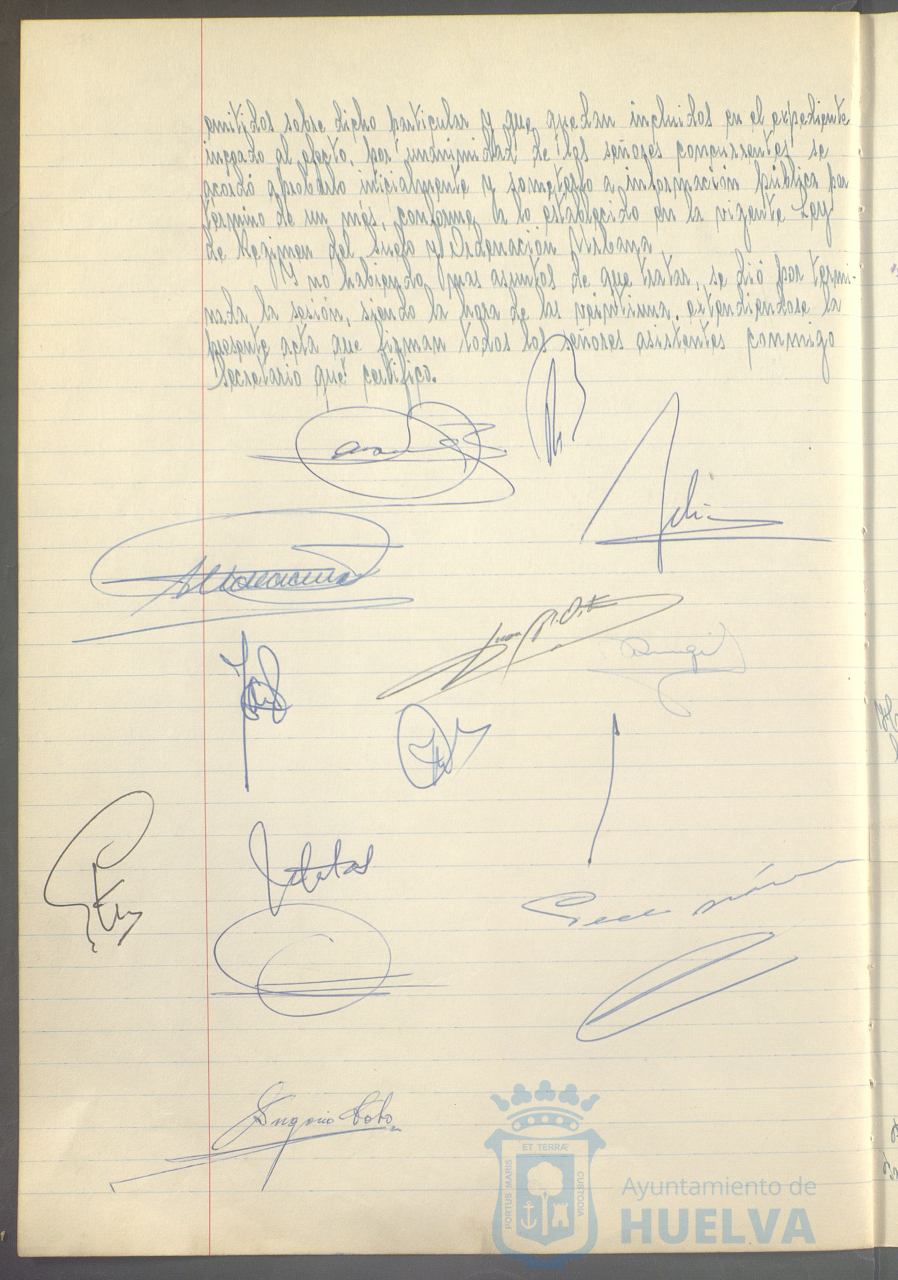 emitidos sobre dicho particular y que quedan incluidos en el expediente
incoado al efecto, por unanimidad de los señores concurrentes se
acordó aprobarlo inicialmente y someterlo a información pública por
termino de un mes, conforme a lo establecido en la vigente Ley
de Regimen del Suelo y Ordenación Urbana.
Y no habiendo mas asuntos de que tratar, se dió por termi-
nada la sesión, siendo la hora de las veintiuna, extendiendose la
presente acta que firman todos los señores asistentes conmigo
Secretario que certifico.
ET TERRÆ
PORTUS MARIS
CUSTODIA
Ayuntamiento de
HUELVA